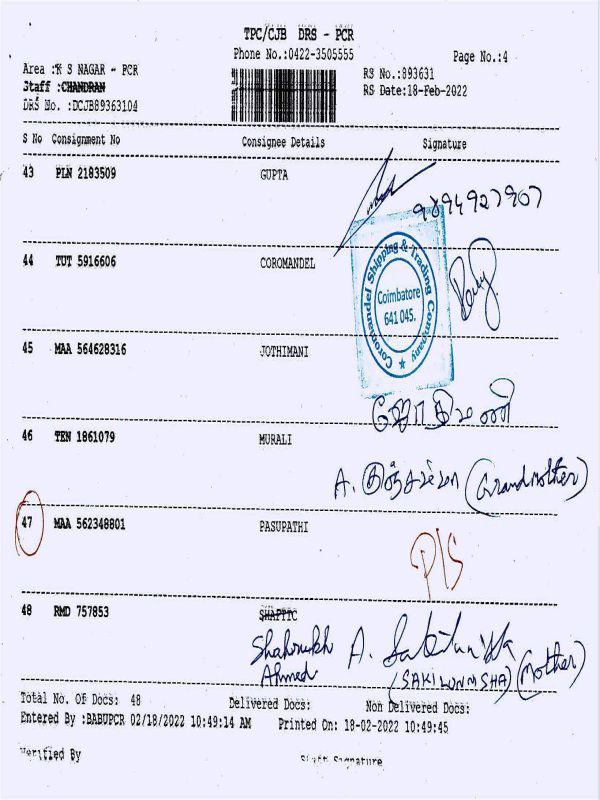 TPC/CJB DRS - PCR
Phone No.:0422-3505555
Page No.:4
Area :K S NAGAR - PCR
RS No.:893631
Staff :CHANDRAN
RS Date:18-Feb-2022
DRS No. :DCJB89363104
S No Consignment No Consignee Details Signature
43 PLN 2183509 GUPTA
9894927907
44 TUT 5916606 COROMANDEL
Coromandel Shipping & Trading Company
Coimbatore
641 045.
45 MAA 564628316 JOTHIMANI
ஜோதிமணி
46 TEN 1861079 MURALI
A. (Grandmother)
47 MAA 562348801 PASUPATHI
P/S
48 RMD 757853
Shahrukh A.
Ahmed (Mother)
Total No. Of Docs: 48 Delivered Docs: Non Delivered Docs:
Entered By :BABUPCR 02/18/2022 10:49:14 AM Printed On: 18-02-2022 10:49:45
Verified By Staff Signature